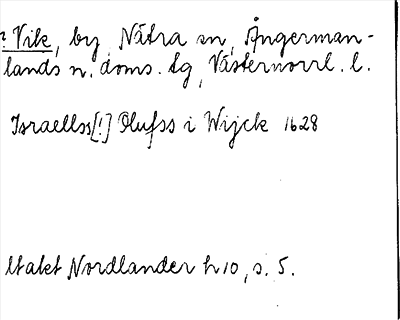 Vik, by, Nätra sn, Ångerman-
lands n. doms. tg, Västernorrl. l.
Israellss[!] Olufss i Wijck 1628
ltakt Nordlander h 10, s. 5.